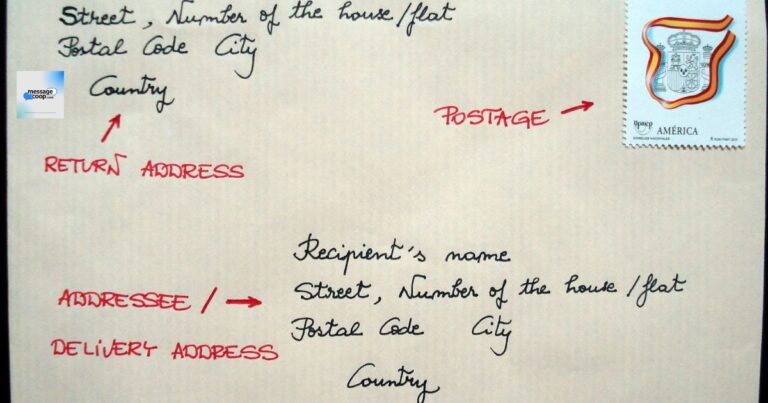 Street, Number of the house/flat
Postal Code City
Country
message
coop.com
POSTAGE →
AMÉRICA
RETURN ADDRESS
Recipient's name
Street, Number of the house/flat
Postal Code City
Country
ADDRESSEE / →
DELIVERY ADDRESS